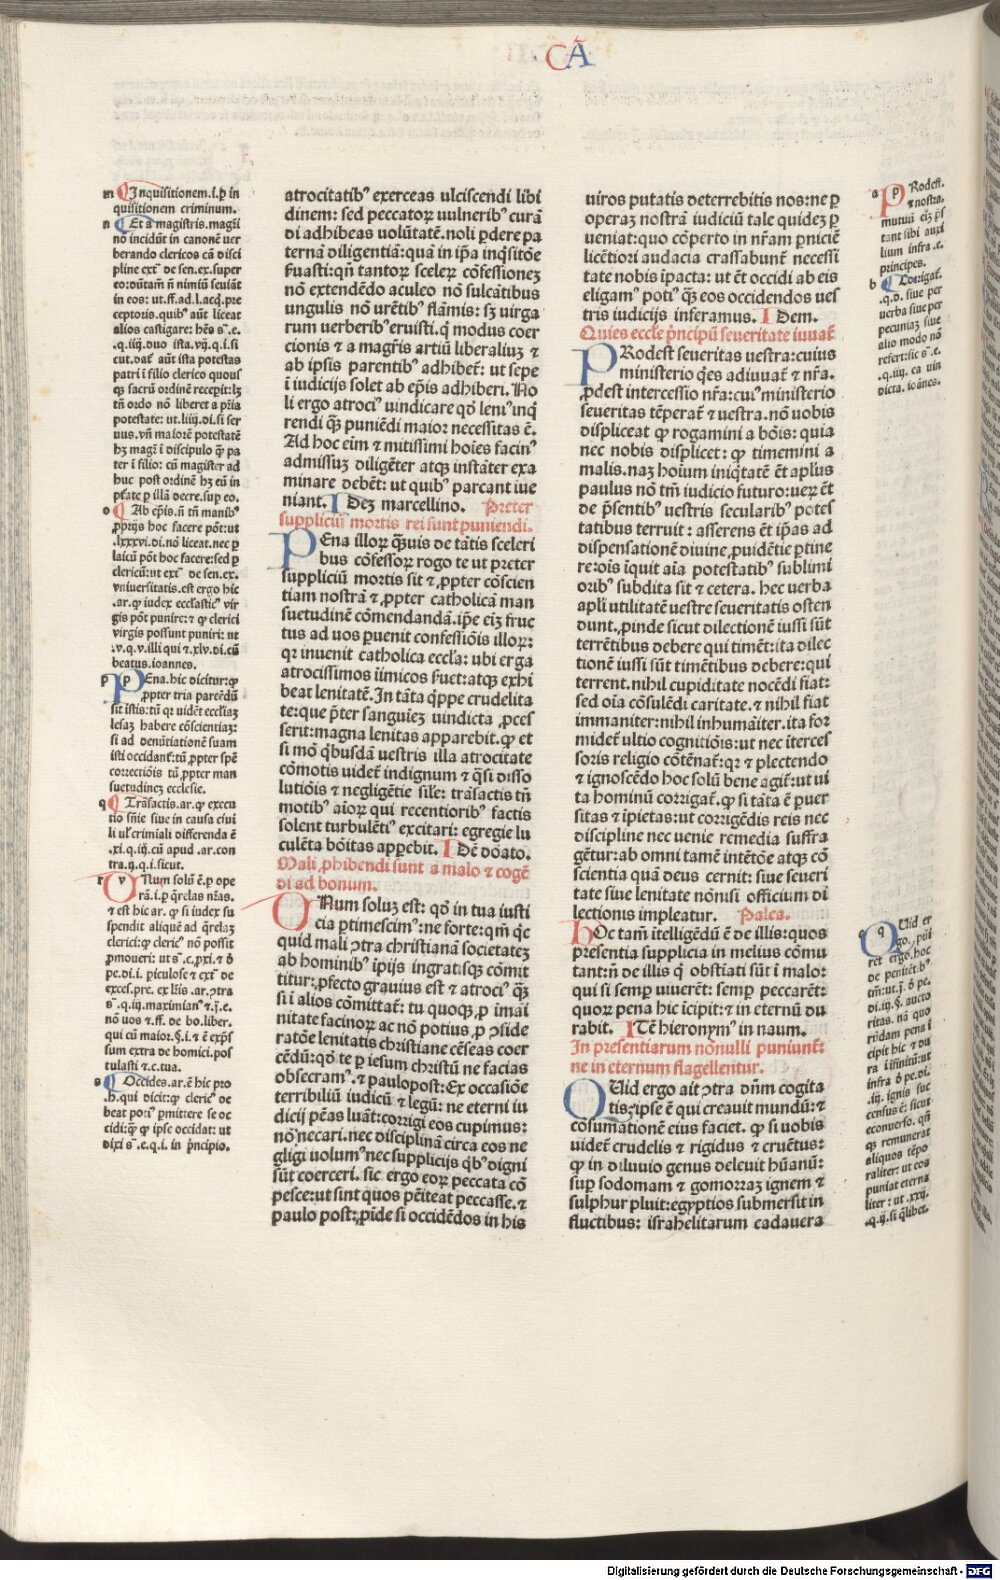 CA
m Inquisitionem.i.ꝓ in
quisitionem criminum.
n Et a magistris.magr̄i
nō incidūt in canonē ver
berando clericos cā disci
pline extͣ de sen.ex.super
eo:dūtam̄ n̄ nimiū seuiāt
in eos: ut.ff.ad.l.acq̄.pre
ceptoris.quibꝰ aūt liceat
alios castigare: hēs s̄.e.
.q.iiij.duo ista.vij.q.i.si
cut.dat̄ aūt ista potestas
patri ī filio clerico quousꝫ
qꝫ sacrū ordinē recepit:lꝫ
tn̄ ordo nō liberet a pr̄ia
potestate: ut.liiij.di.si ser
uus.vn̄ maiorē potestatē
hꝫ magr̄ ī discipulo ꝙ̄ pa
ter ī filio: cū magister ad
huc post ordinē hꝫ eū in
pt̄ate ꝓ illā decre.sup eo.
o Ab ep̄is.n̄ tn̄ manibꝰ
ꝓprijs hoc facere pōt:ut
.lxxxvi.di.nō liceat.nec ꝑ
laicū pōt hoc facere:sed ꝑ
clericū:ut extͣ de sen.ex.
vniuersitatis.est ergo hic
.ar.ꝙ iudex ecclāsticꝰ vir
gis pōt punire:ꞇ ꝙ clerici
virgis possunt puniri: ut
.v.q.v.illi qui ꞇ.xlv.di.cū
beatus.ioannes.
p pEna.hic dicitur:ꝙ
ꝓpter tria parcēdū
sit istis:tū qꝛ uidēt ecclīaꝫ
lesaꝫ habere cōscientiaꝫ:
si ad denūtiationē suam
isti occidant̄:tū ꝓpter spē
correctiōis tū ꝓpter man
suetudineꝫ ecclesie.
q Trāsactis.ar.ꝙ execu
tio sn̄ie siue in causa ciui
li ul̄ crimīali differenda ē
.xi.q.iij.cū apud .ar.con
tra.ij.q.i.sicut.
r vNum solū ē.ꝓ ope
rā.i.ꝑ q̄relas nr̄as.
ꞇ est hic ar. ꝙ si iudex su
spendit aliquē ad q̄relaꝫ
clerici:ꝙ clericꝰ nō possit
ꝓmoueri: ut s̄.c.pxi.ꞇ ō
pe.di.i. ꝑiculose ꞇ extͣ de
exces.pre. ex lr̄is .ar.ↄtra
s̄ .q.iij.maximianꝰ ꞇ.j.e.
nō uos ꞇ.ff. de bo.liber.
qui cū maior.§.i.ꞇ ē exp̄s
sum extra de homici.pos
tulasti ꞇ.c.tua.
s Occides.ar.ē hic pro
.h.qui dicit:ꝙ clericꝰ de
beat potiꝰ ꝑmittere se oc
cidi:ꝙ̄ ꝙ ipse occidat: ut
dixi s̄ .e.q.i. in pͥncipio.
atrocitatibꝰ exerceas ulciscendi libi
dinem: sed peccatoꝝ uulneribꝰ curā
di adhibeas uolūtatē.noli ꝑdere pa
ternā diligentiā:quā in ip̄a inq̄sitōe
ẜuasti:qn̄ tantoꝝ sceleꝝ cōfessioneꝫ
nō extendēdo aculeo nō sulcātibus
ungulis nō urētibꝰ flāmis: sꝫ virga
rum uerberibꝰ eruisti.q̄ modus coer
cionis ꞇ a magr̄is artiū liberaliuꝫ ꞇ
ab ipsis parentibꝰ adhibet̄: ut sepe
ī iudicijs solet ab ep̄is adhiberi. No
li ergo atrociꝰ uindicare qō leniꝰ inq̄
rendi ꝙ̄ puniēdi maior necessitas ē.
Ad hoc eim̄ ꞇ mitissimi hoīes facinꝰ
admissuꝫ diligēter atqꝫ instāter exa
minare debēt: ut quibꝰ parcant iue
niant. I Deꝫ marcellino. Preter
suppliciū mortis rei sunt puniendi.
PEna illoꝝ ꝙ̄uis de tātis sceleri
bus cōfessoꝝ rogo te ut preter
suppliciū mortis sit ꞇ ꝓpter cōscien
tiam nostrā ꞇ ꝓpter catholicā man
suetudinē cōmendandā.ip̄e eiꝫ fruc
tus ad uos puenit confessiōis illoꝝ:
qꝛ inuenit catholica eccl̄a: ubi erga
atrocissimos iimicos ẜuet:atqꝫ exhi
beat lenitatē.In tāta q̄ppe crudelita
te:que pͣter sanguieꝫ uindicta ꝓces
serit:magna lenitas apparebit.ꝙ et
si mō q̄busdā uestris illa atrocitate
cōmotis uidet̄ indignum ꞇ q̄si disso
lutiōis ꞇ negligētie sil̄e: trāsactis tn̄
motibꝰ aioꝝ qui recentioribꝰ factis
solent turbulētiꝰ excitari: egregie lu
culēta bōitas appebit. I Dē dōato.
Mali ꝓhibendi sunt a malo ꞇ cogē
di ad bonum.
UNum soluꝫ est: qō in tua iusti
cia ꝑtimescimꝰ:ne forte:qm̄ q̄c
quid mali ↄtra christianā societateꝫ
ab hominibꝰ ipijs ingratisqꝫ cōmit
titur:ꝓfecto grauius est ꞇ atrociꝰ ꝙ̄
si ī alios cōmittat̄: tu quoqꝫ ꝓ imāi
nitate facinoꝝ ac nō potius ꝓ ↄside
ratōe lenitatis christiane cēseas coer
cēdū:qō te ꝑ iesum christū ne facias
obsecramꝰ.ꞇ paulopost:Ex occasiōe
terribiliū iudicū ꞇ legū: ne eterni iu
dicij pēas luāt:corrigi eos cupimus:
nō necari.nec disciplinā circa eos ne
gligi uolumꝰ nec supplicijs q̄bꝰ digni
sūt coerceri. sic ergo eoꝝ peccata cō
pesce:ut sint quos pēiteat peccasse.ꞇ
paulo post:ꝓide si occidēdos in his
uiros putatis deterrebitis nos:ne ꝑ
operaꝫ nostrā iudiciū tale quideꝫ ꝑ
ueniat:quo cōperto in nr̄am ꝑniciē
licētiori audacia crassabunt̄ necessi
tate nobis īpacta: ut ēt occidi ab eis
eligamꝰ potiꝰ ꝙ̄ eos occidendos ues
tris iudicijs inferamus. I Dem.
Quies eccl̄e pͥncipū seueritate iuuat̄
PRodest seueritas uestra:cuius
ministerio q̄es adiuuat̄ ꞇ nr̄a.
ꝓdest intercessio nr̄a:cuiꝰ ministerio
seueritas tēperat̄ ꞇ uestra.nō uobis
displiceat ꝙ rogamini a bōis: quia
nec nobis displicet: ꝙ timemini a
malis.naꝫ hoium iniq̄tatē ēt ap̄lus
paulus nō tm̄ iudicio futuro:ueꝝ ēt
de pn̄tibꝰ uestris secularibꝰ potes
tatibus terruit : asserens ēt ip̄as ad
dispensationē diuine ꝓuidētie ꝑtine
re:ois̄ īquit aīa potestatibꝰ sublimi
oribꝰ subdita sit ꞇ cetera. hec uerba
apl̄i utilitatē uestre seueritatis osten
dunt.ꝓinde sicut dilectionē iussi sūt
terrētibus debere qui timēt:ita dilec
tionē iussi sūt timētibus debere:qui
terrent.nihil cupiditate nocēdi fiat:
sed oīa cōsulēdi caritate.ꞇ nihil fiat
immaniter:nihil inhumāiter.ita for
midet̄ ultio cognitiōis:ut nec īterces
soris religio cōtēnat̄:qꝛ ꞇ plectendo
ꞇ ignoscēdo hoc solū bene agit̄:ut ui
ta hominū corrigat̄.ꝙ si tāta ē ꝑuer
sitas ꞇ īpietas:ut corrigēdis reis nec
discipline nec uenie remedia suffra
gētur:ab omni tamē intētōe atqꝫ cō
scientia quā deus cernit: siue seueri
tate siue lenitate nōnisi officium di
lectionis impleatur. Palea.
HOc tam̄ itelligēdū ē de illis:quos
presentia supplicia in melius cōmu
tant:n̄ de illis q̄ obstīati sūt ī malo:
qui si semꝑ uiuerēt: semꝑ peccarēt:
quoꝝ pena hic īcipit:ꞇ in eternū du
rabit. ITē hieronymꝰ in naum.
In presentiarum nōnulli puniunt̄:
ne in eternum flagellentur.
QUid ergo ait ↄtra dn̄m cogita
tis:ipse ē qui creauit mundū:ꞇ
cōsumationē eius faciet. ꝙ si uobis
uidet̄ crudelis ꞇ rigidus ꞇ cruētus:
ꝙ in diluuio genus deleuit hūanū:
suꝑ sodomam ꞇ gomorraꝫ ignem ꞇ
sulphur pluit:egyptios submersit in
fluctibus: israhelitarum cadauera
a pRodest.
ꞇ nostra.
mutuū eiꝫ pͥs
tant sibi auxi
lium infra .e.
principes.
b Corrigat̄.
.q.d. siue per
uerba siue per
pecuniaꝫ siue
alio modo nō
refert:sic s̄ .e.
.q.iiij. ca vin
dicta. ioānes.
c qUid er
go. pūi
ret ergo.hoc
de penitēt.bꝰ
tm̄:ut.j. ō pe.
di.iij.§. aucto
ritas. nā quo
rūdam pena ī
cipit hic ꞇ du
ra ī ifinitū:ut
infra ō pe.di.
.iij. ignis suc
census ē: sicut
econuerso. qn̄
qꝫ remunerat
aliquos tēpo
raliter: ut eos
puniat eterna
liter : ut .xxij.
.q.ij.si q̄libet.
Digitalisierung gefördert durch die Deutsche Forschungsgemeinschaft - DFG